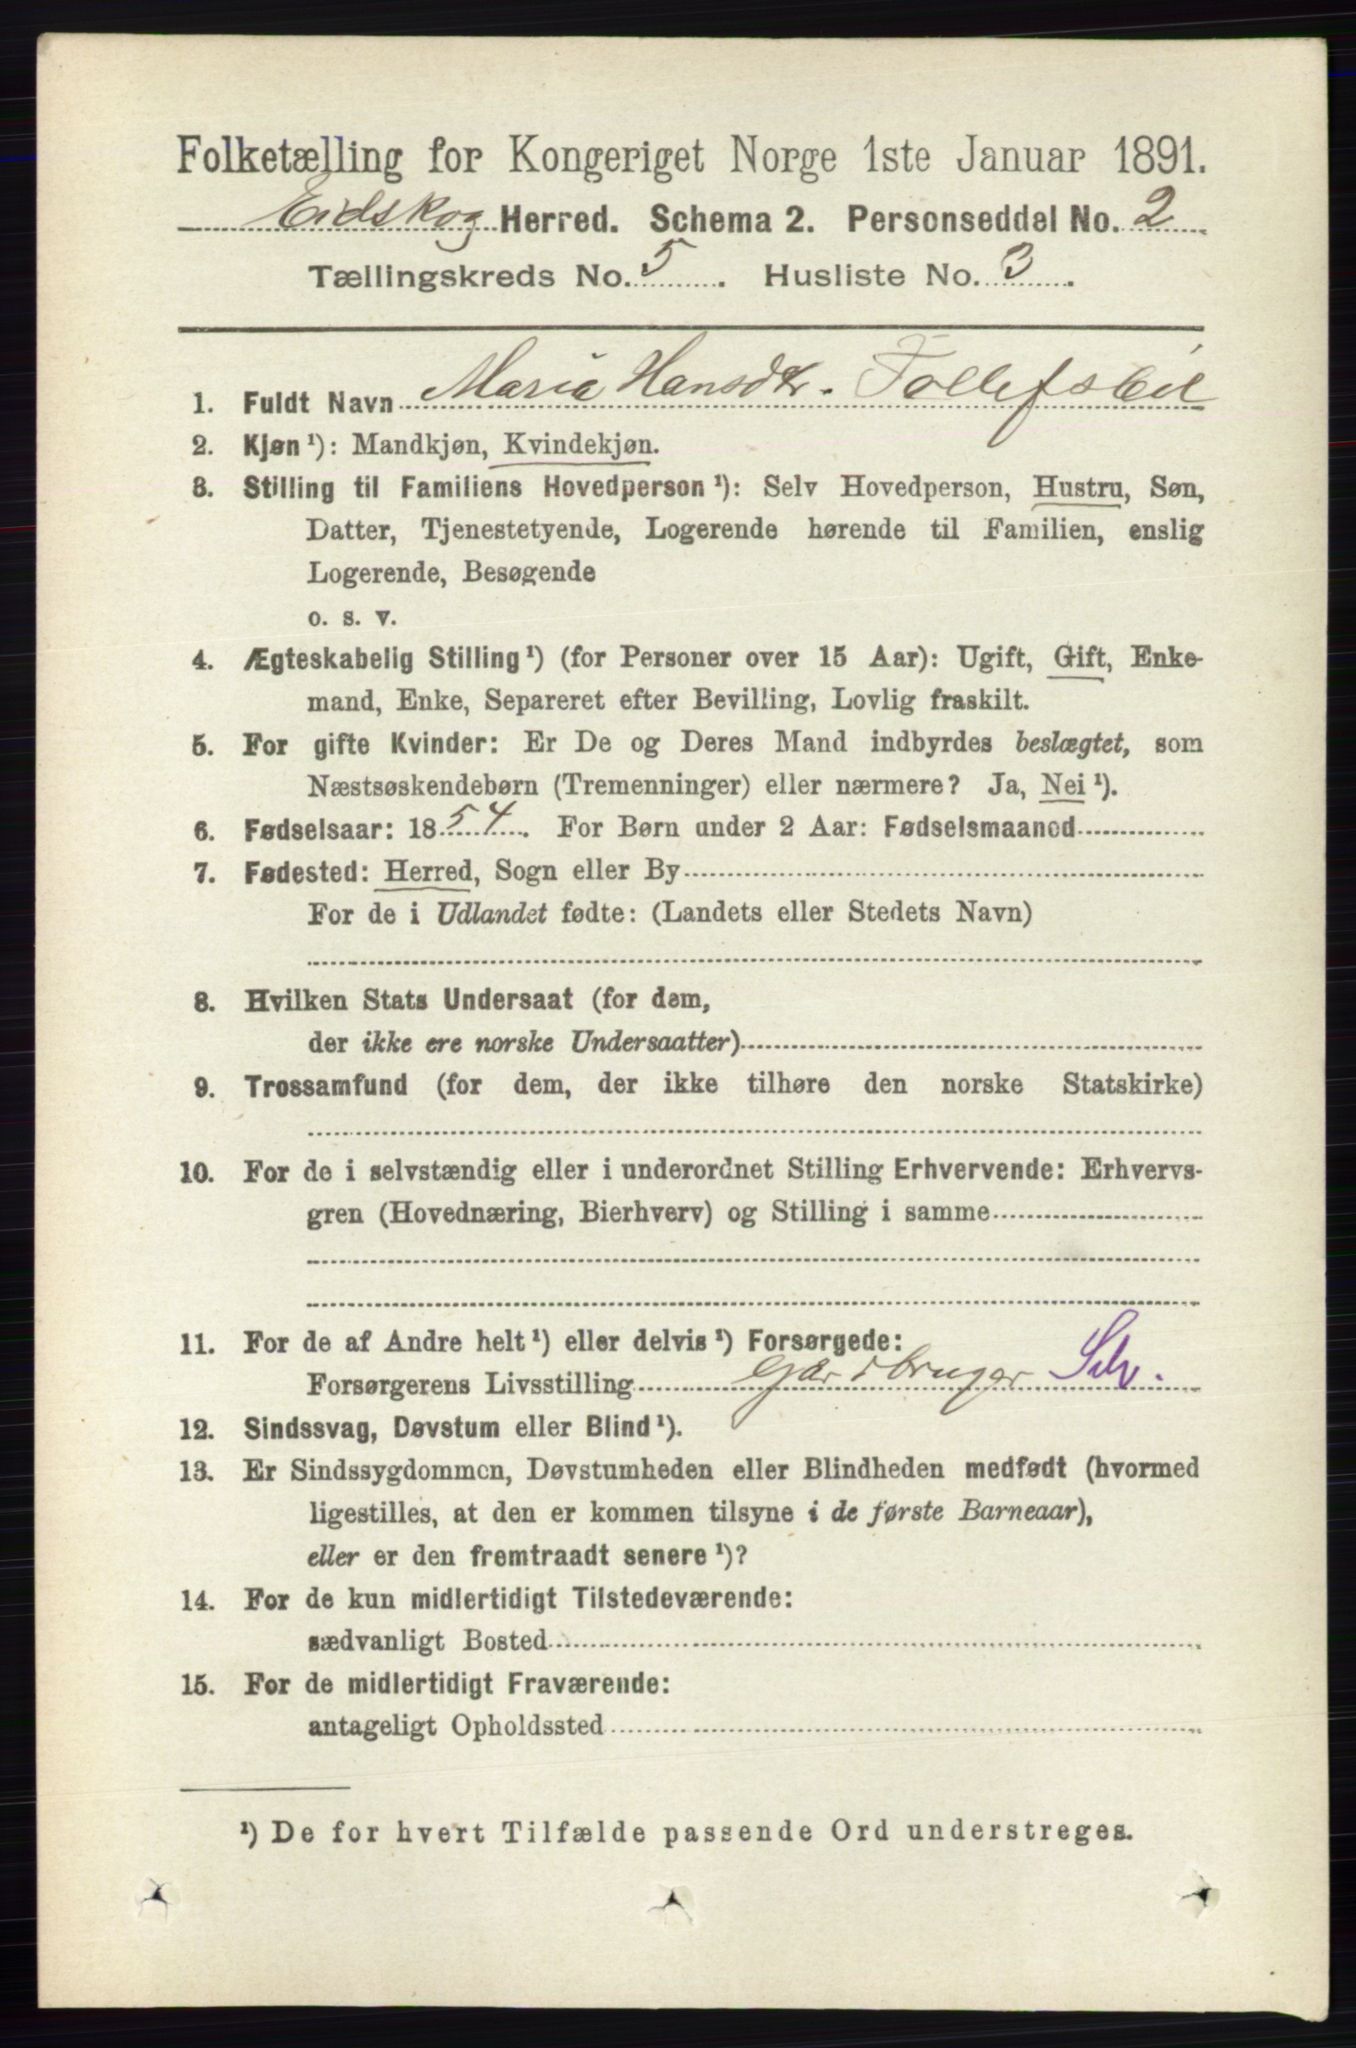 Folketælling for Kongeriget Norge 1ste Januar 1891.
Eidskog Herred. Schema 2. Personseddel No. 2
Tællingskreds No. 5. Husliste No. 3.
1. Fuldt Navn Maria Hansdtr.
2. Kjøn ¹): Mandkjøn, Kvindekjøn.
3. Stilling til Familiens Hovedperson ¹): Selv Hovedperson, Hustru, Søn,
Datter, Tjenestetyende, Logerende hørende til Familien, enslig
Logerende, Besøgende
o. s. v.
4. Ægteskabelig Stilling ¹) (for Personer over 15 Aar): Ugift, Gift, Enke-
mand, Enke, Separeret efter Bevilling, Lovlig fraskilt.
5. For gifte Kvinder: Er De og Deres Mand indbyrdes beslægtet, som
Næstsøskendebørn (Tremenninger) eller nærmere? Ja, Nei ¹).
6. Fødselsaar: 1854. For Børn under 2 Aar: Fødselsmaaned
7. Fødested: Herred, Sogn eller By
For de i Udlandet fødte: (Landets eller Stedets Navn)
8. Hvilken Stats Undersaat (for dem,
der ikke ere norske Undersaatter)
9. Trossamfund (for dem, der ikke tilhøre den norske Statskirke)
10. For de i selvstændig eller i underordnet Stilling Erhvervende: Erhvervs-
gren (Hovednæring, Bierhverv) og Stilling i samme
11. For de af Andre helt ¹) eller delvis ¹) Forsørgede:
Forsørgerens Livsstilling Gardbruger Selv.
12. Sindssvag, Døvstum eller Blind ¹).
13. Er Sindssygdommen, Døvstumheden eller Blindheden medfødt (hvormed
ligestilles, at den er kommen tilsyne i de første Barneaar),
eller er den fremtraadt senere ¹)?
14. For de kun midlertidigt Tilstedeværende:
sædvanligt Bosted
15. For de midlertidigt Fraværende:
antageligt Opholdssted
¹) De for hvert Tilfælde passende Ord understreges.